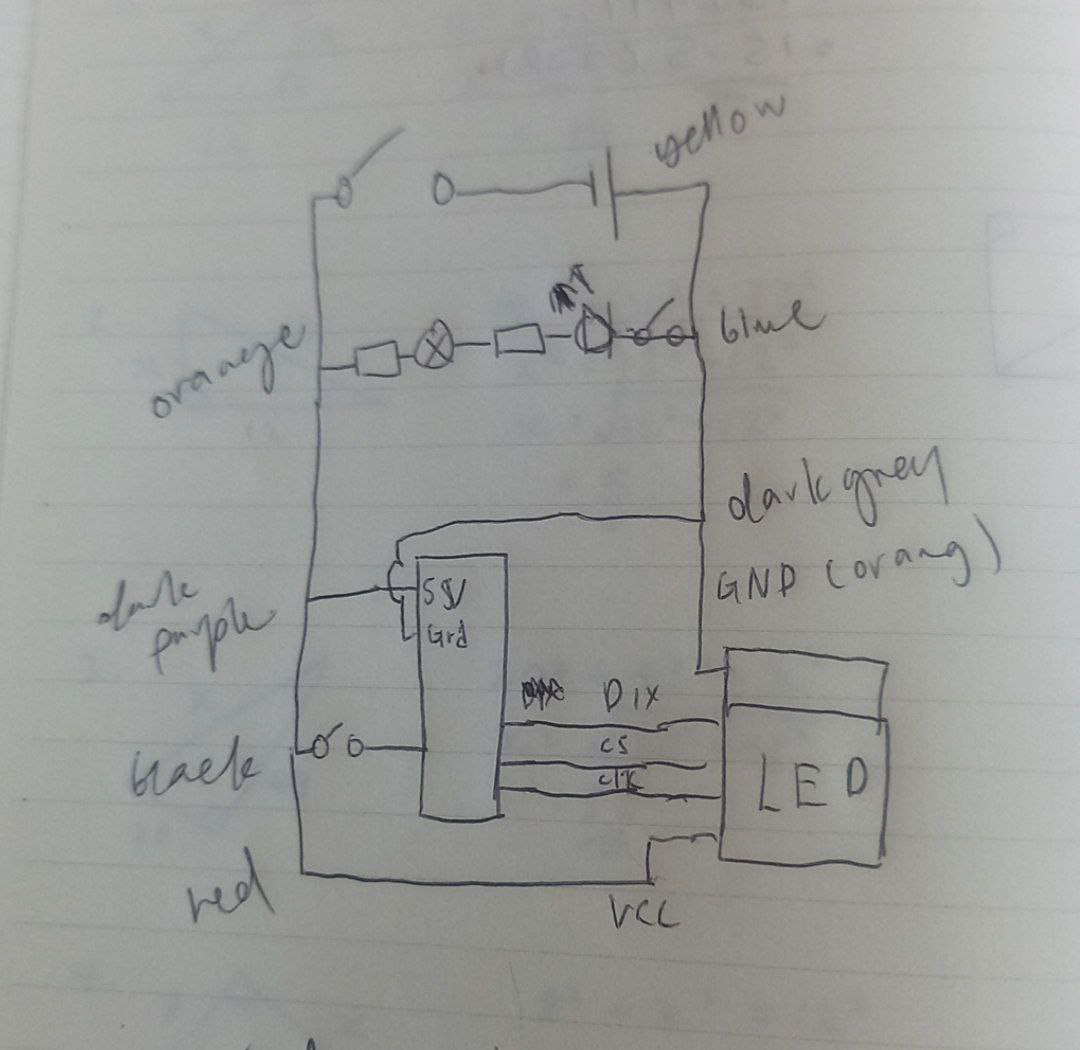 yellow
orange
blue
dark grey
GND (orang)
dark
purple
5V
Grd
DIX
CS
clk
black
LED
red
VCC